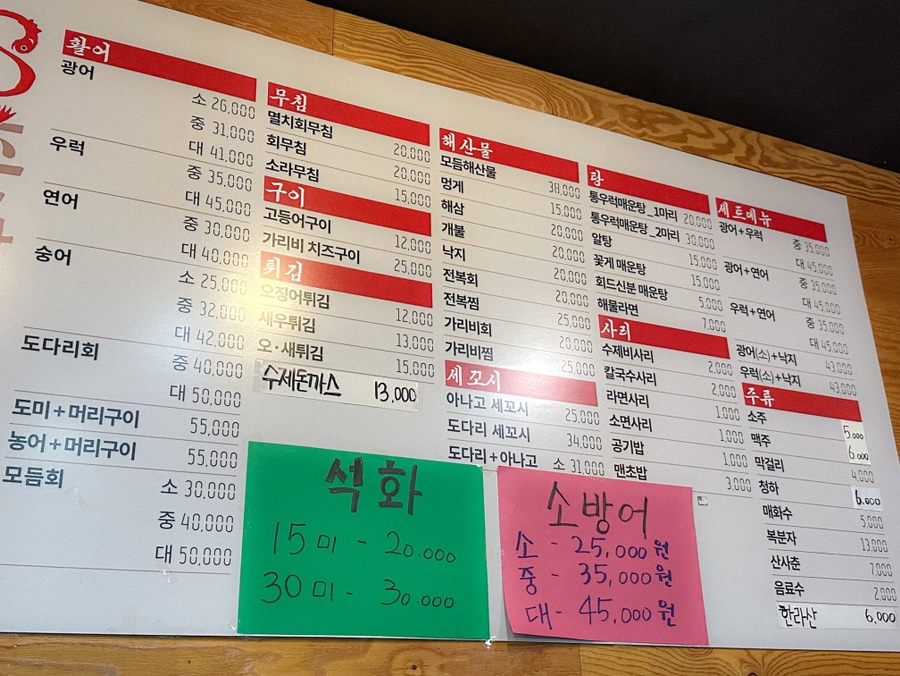 활어
광어 소 26,000
중 31,000
대 41,000
우럭 중 35,000
대 45,000
연어 중 30,000
대 40,000
숭어 소 25,000
중 32,000
대 42,000
도다리회 중 40,000
대 50,000
도미+머리구이 55,000
농어+머리구이 55,000
모듬회 소 30,000
중 40,000
대 50,000
무침
멸치회무침 20,000
회무침 20,000
소라무침 15,000
구이
고등어구이 12,000
가리비 치즈구이 25,000
튀김
오징어튀김 12,000
새우튀김 13,000
오·새튀김 15,000
수제돈까스 13,000
해산물
모듬해산물 38,000
멍게 15,000
해삼 20,000
개불 20,000
낙지 20,000
전복회 20,000
전복찜 25,000
가리비회 25,000
가리비찜 25,000
세꼬시
아나고 세꼬시 25,000
도다리 세꼬시 34,000
도다리+아나고 소 31,000
탕
통우럭매운탕_1마리 20,000
통우럭매운탕_2마리 30,000
알탕 15,000
꽃게 매운탕 15,000
회드신분 매운탕 5,000
해물라면 7,000
사리
수제비사리 2,000
칼국수사리 2,000
라면사리 1,000
소면사리 1,000
공기밥 1,000
맨초밥 3,000
세트메뉴
광어+우럭 중 35,000
대 45,000
광어+연어 중 35,000
대 45,000
우럭+연어 중 35,000
대 45,000
광어(소)+낙지 43,000
우럭(소)+낙지 43,000
주류
소주 5,000
맥주 6,000
막걸리 4,000
청하 6,000
매화수 5,000
복분자 13,000
산사춘 7,000
음료수 2,000
한라산 6,000
석화
15미 - 20.000
30미 - 30.000
소방어
소 - 25,000원
중 - 35,000원
대 - 45,000원